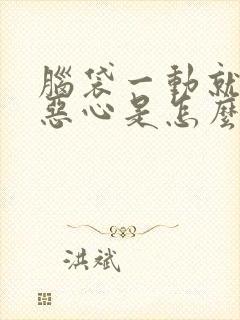 腦袋一動就
惡心是怎麼
洪斌